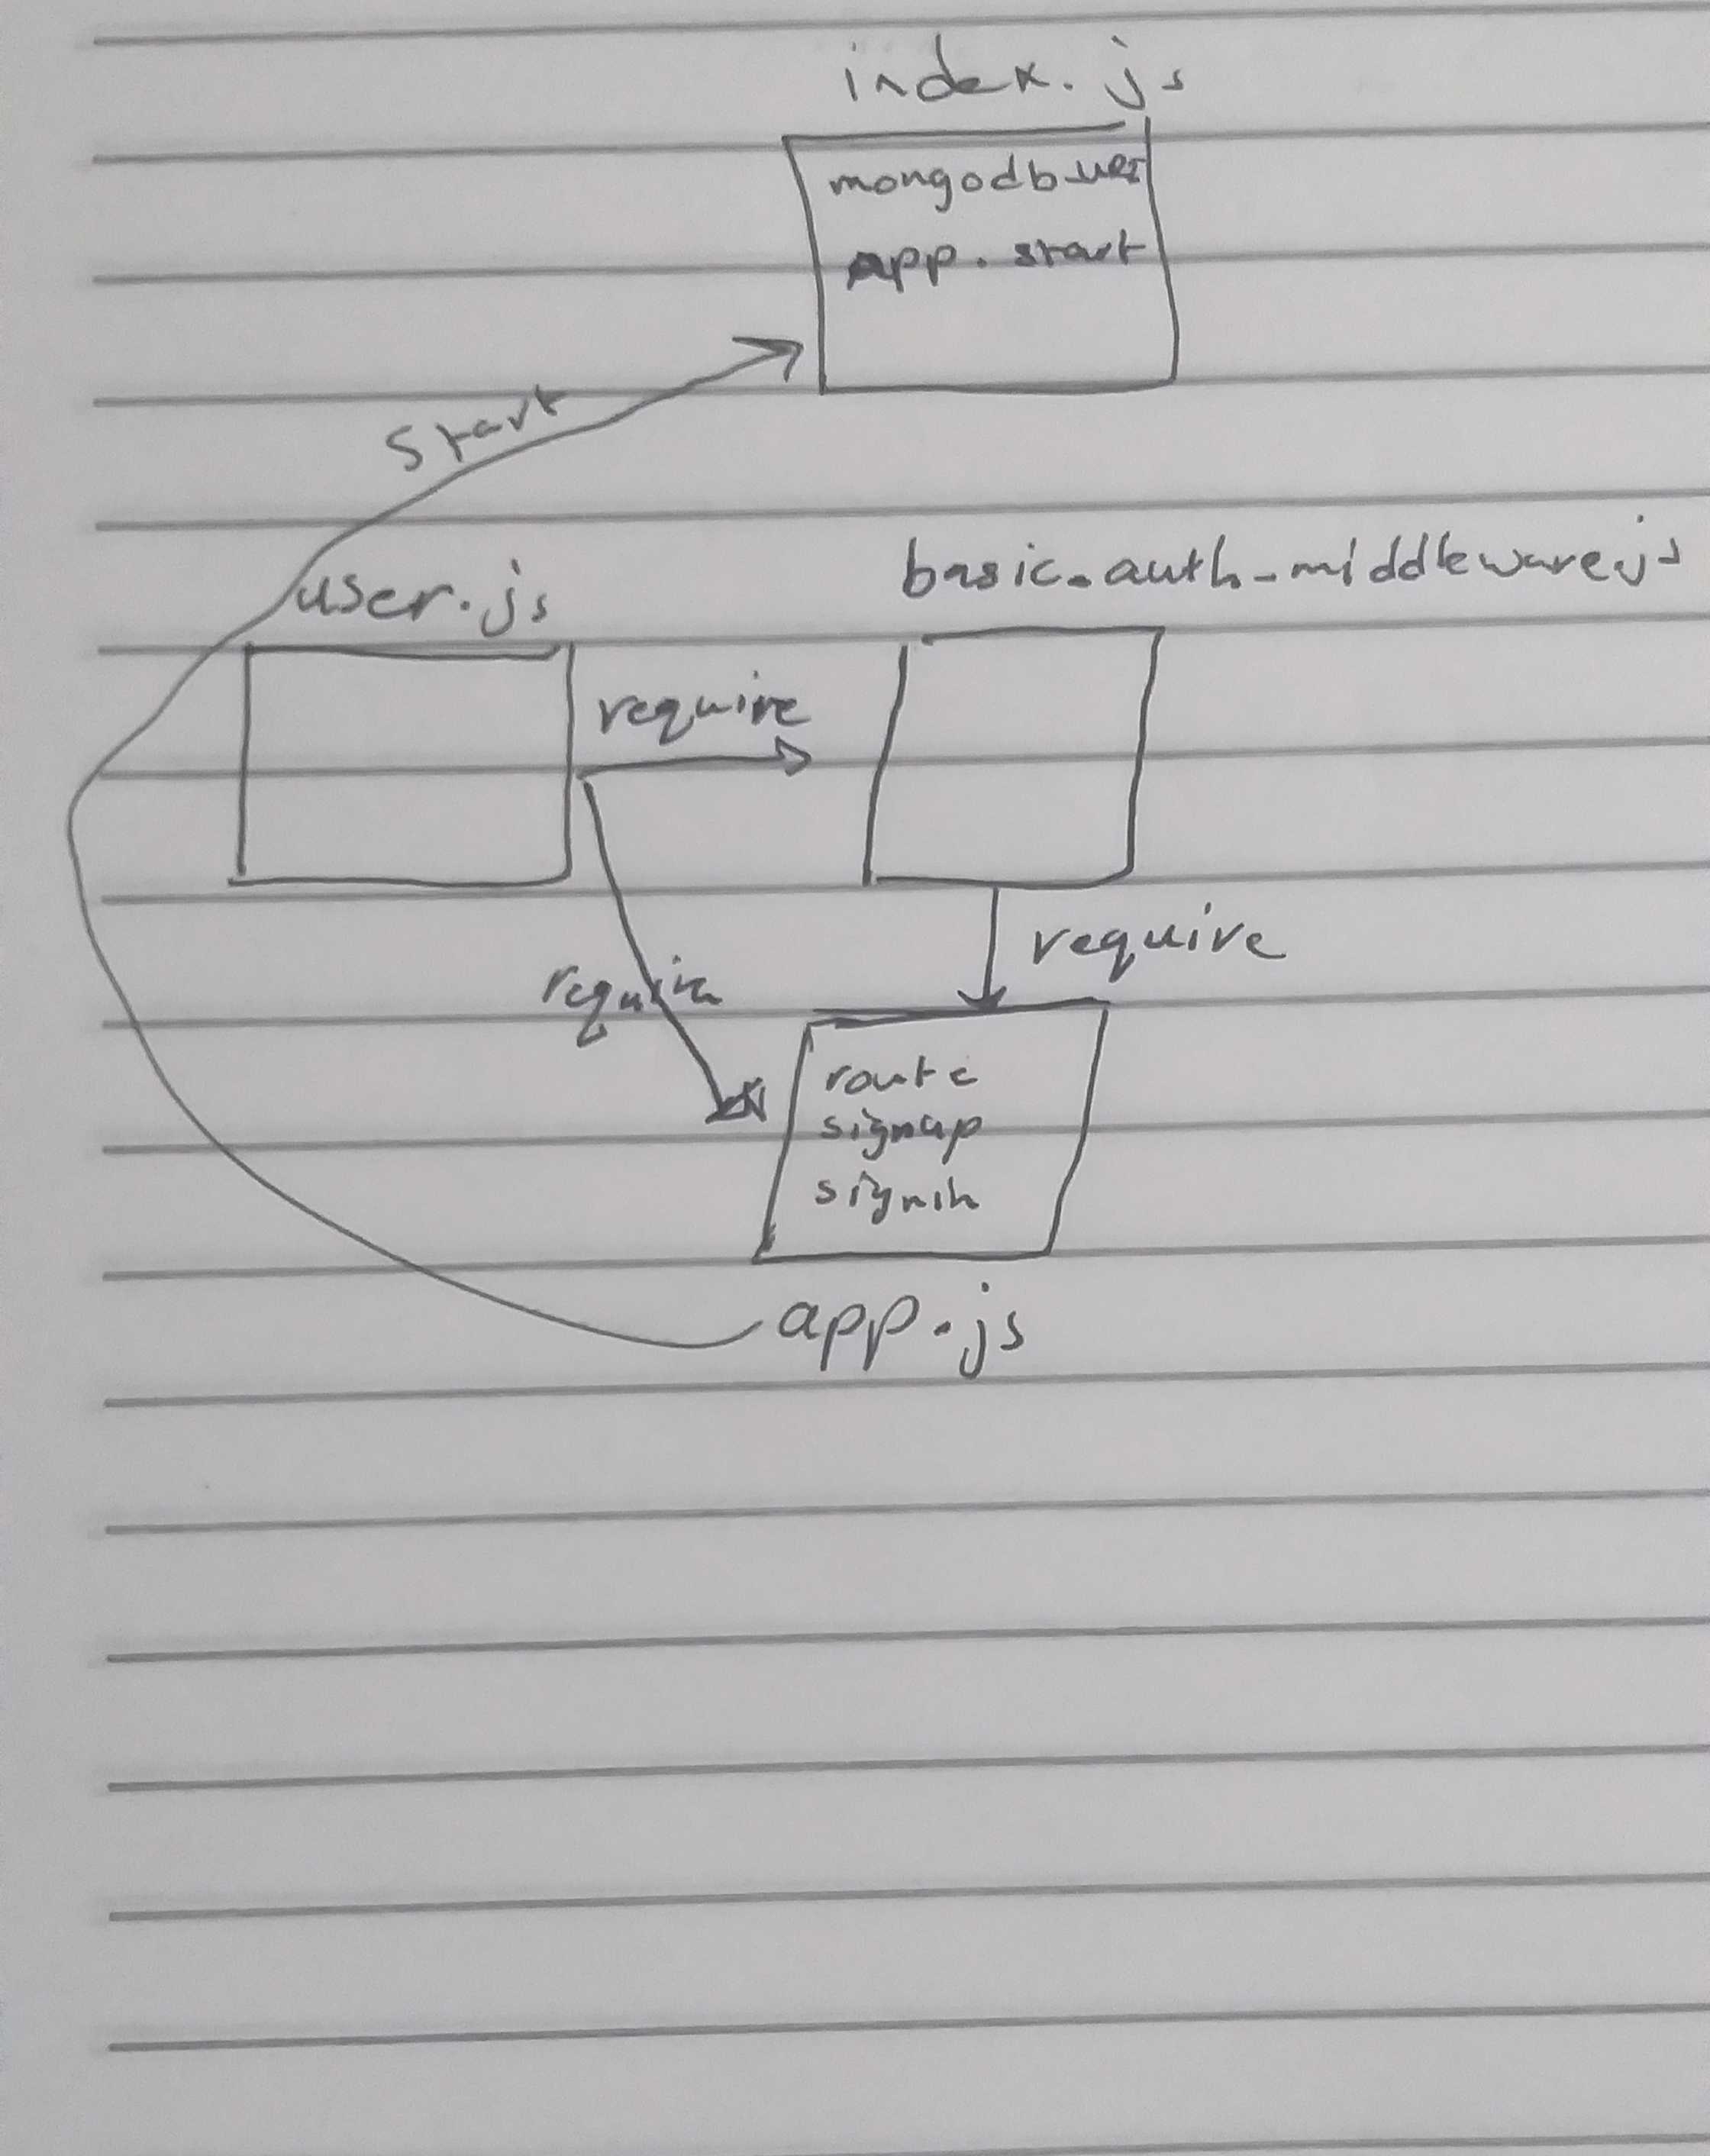 index.js
mongodb_uri
app.start
start
user.js
basic-auth-middleware.js
require
require
require
route
signup
signin
app.js